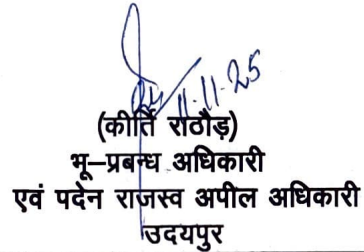 11-11-25
(कीर्ति राठौड़)
भू–प्रबन्ध अधिकारी
एवं पदेन राजस्व अपील अधिकारी
उदयपुर